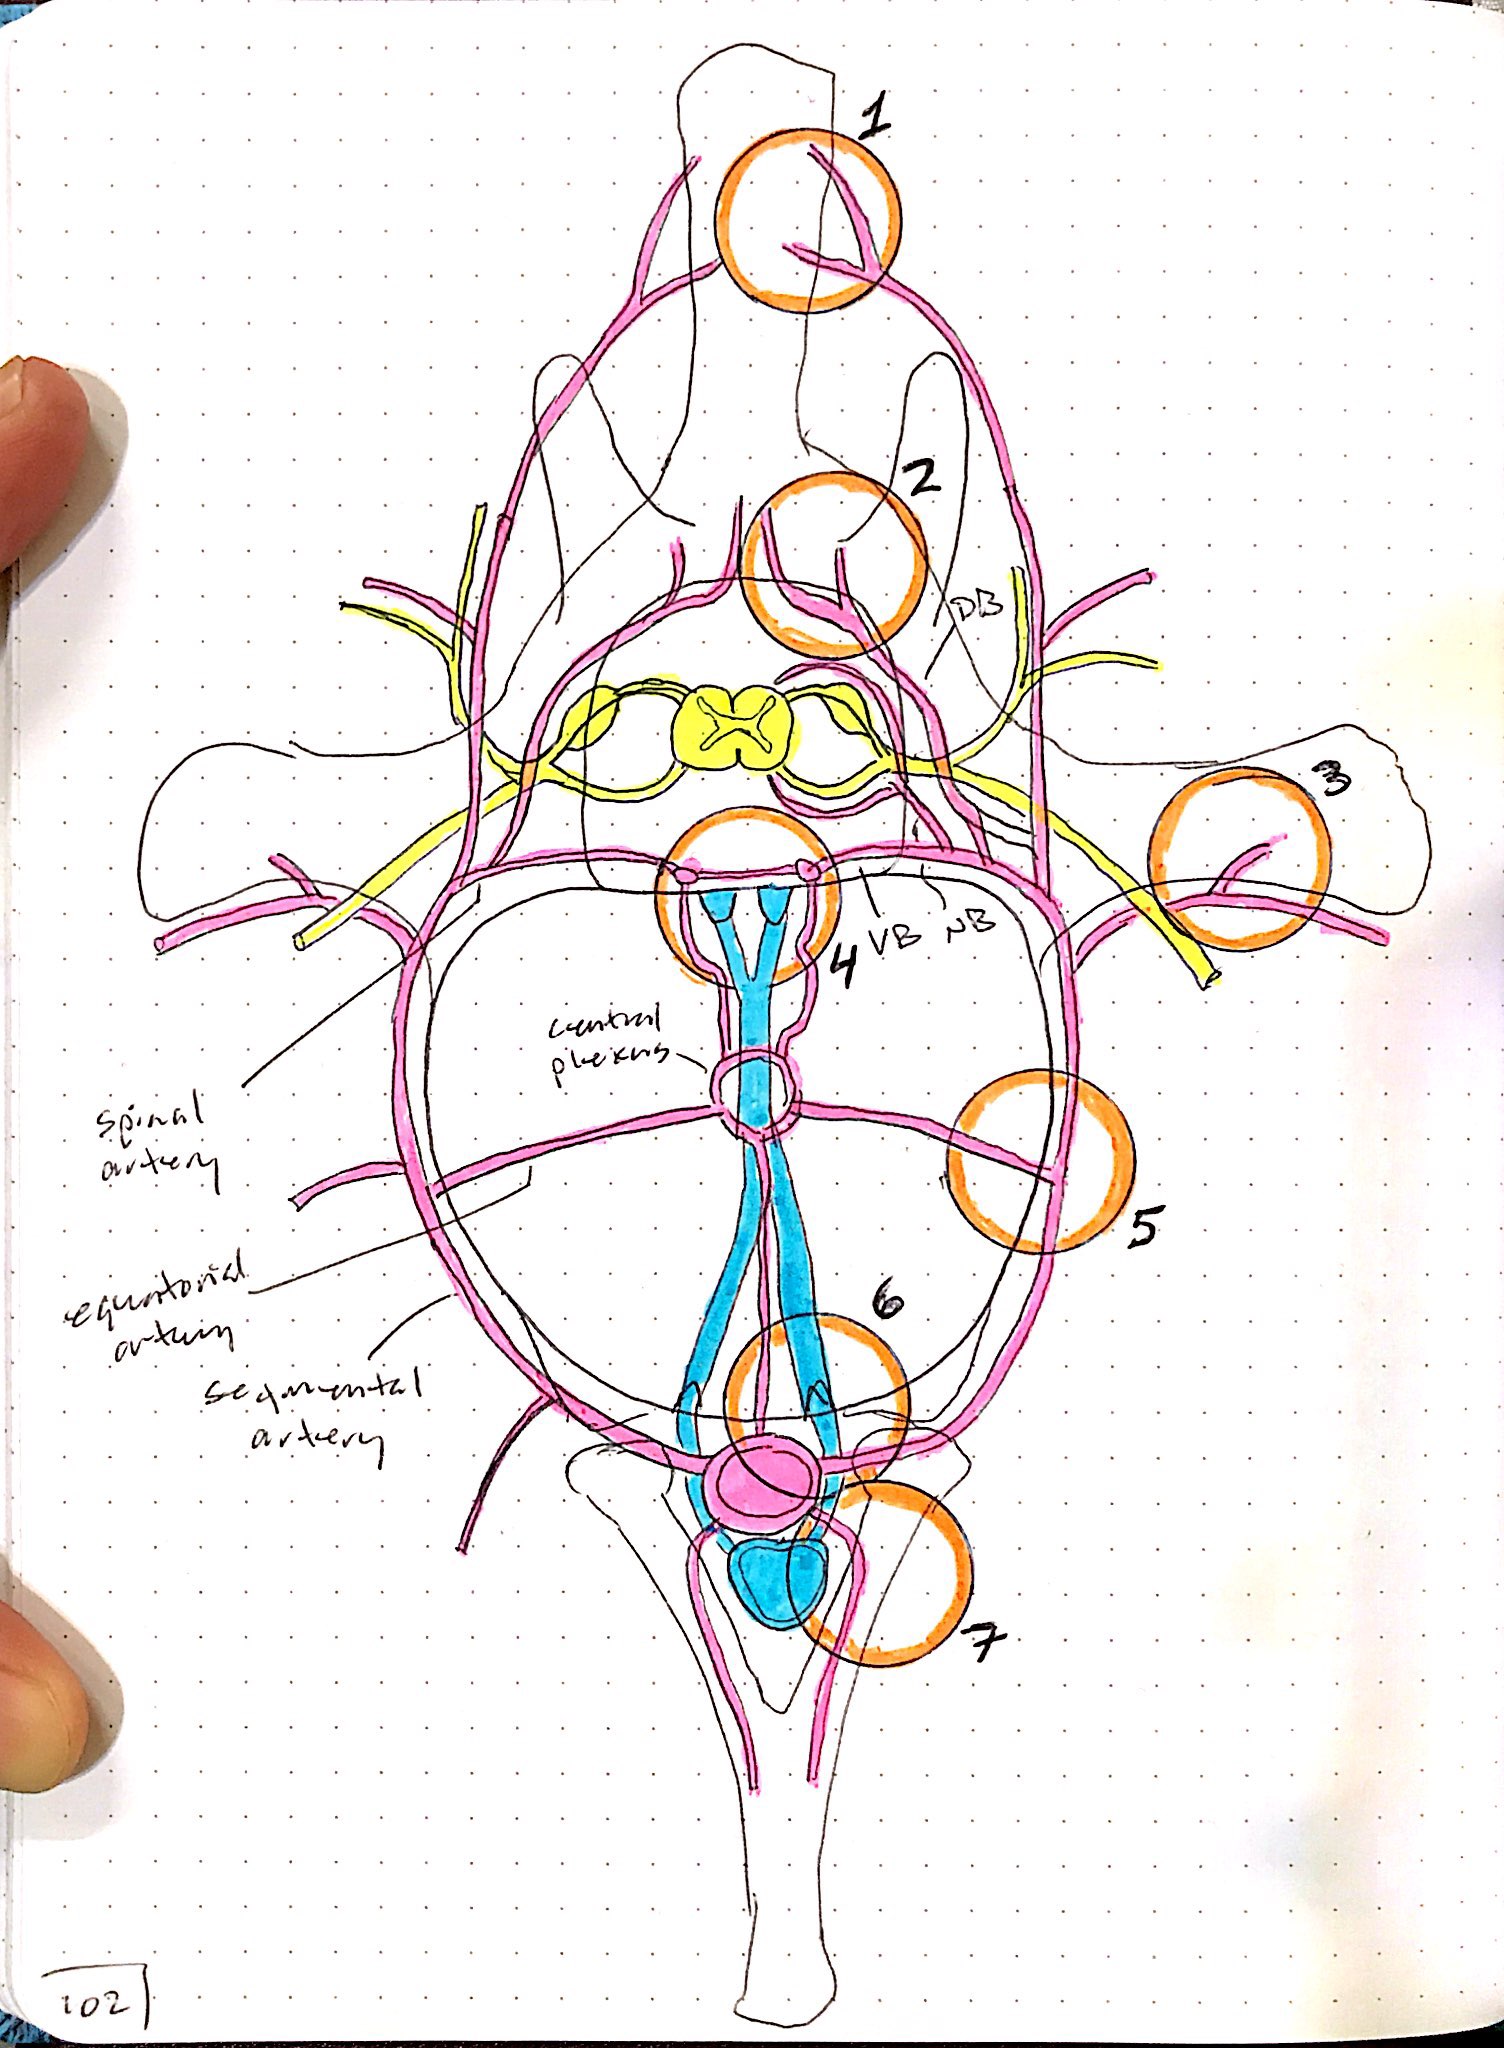 1
2
DB
3
4
VB NB
central
plexus
spinal
artery
5
equitorial
artery
6
segmental
artery
7
102